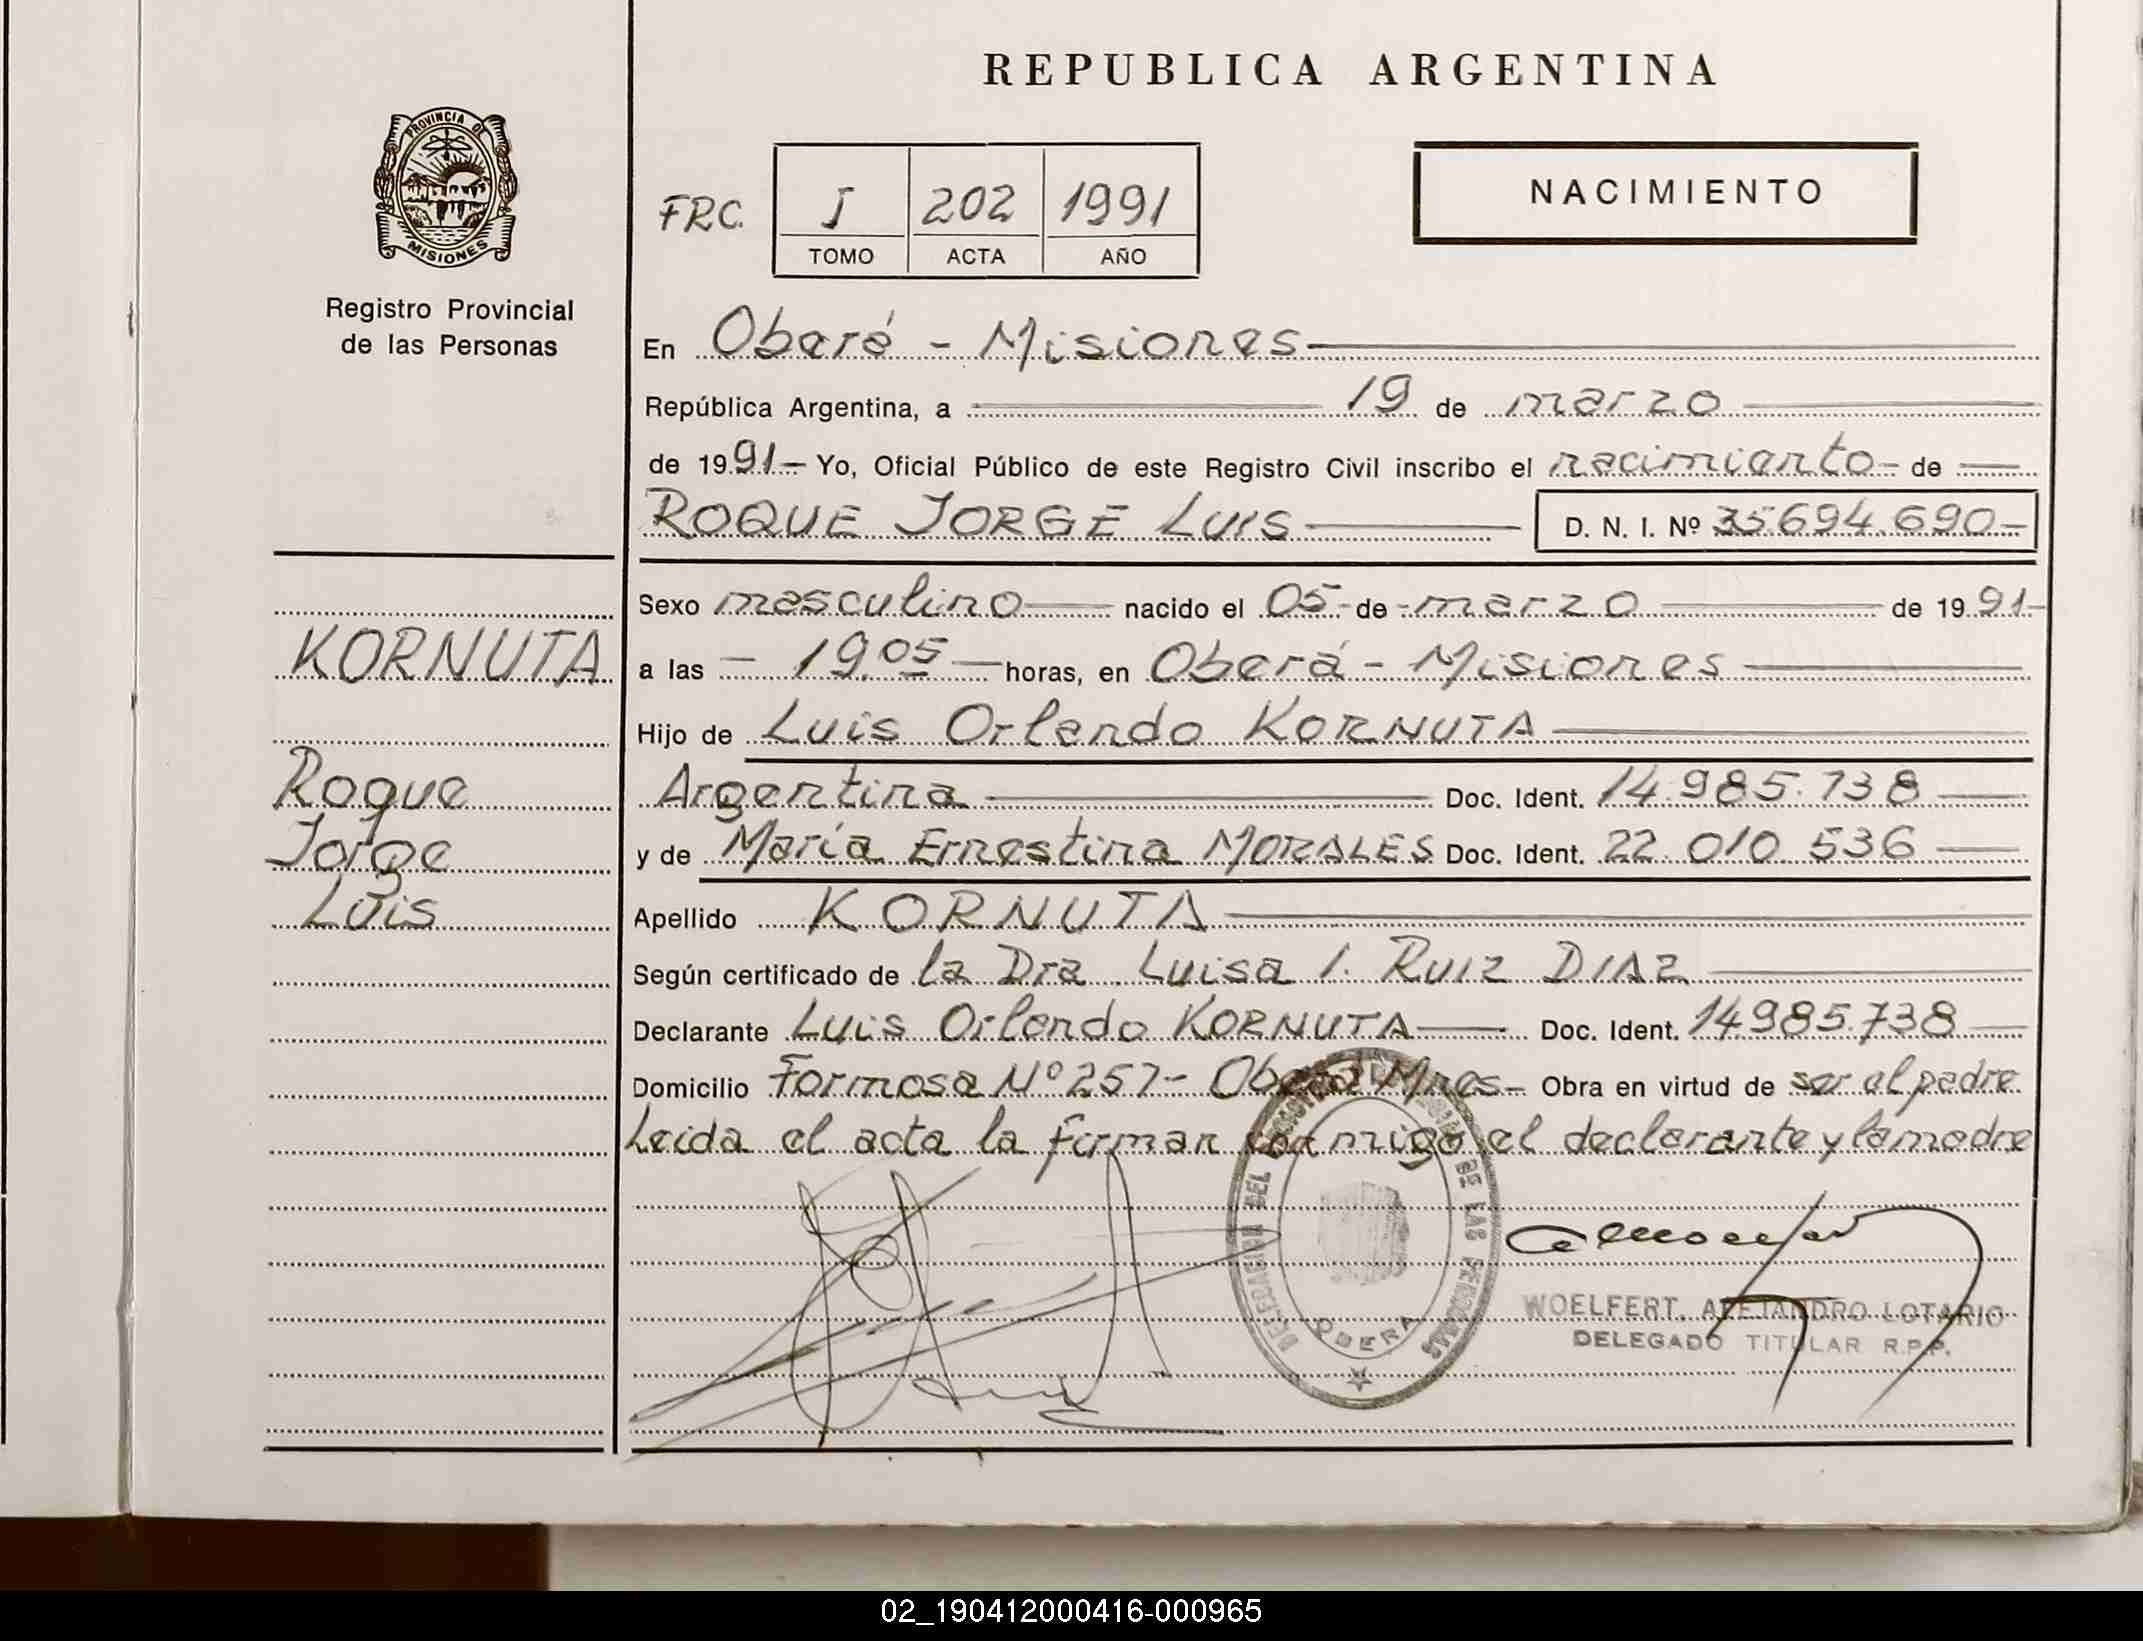 REPUBLICA ARGENTINA
PROVINCIA DE
MISIONES
Registro Provincial
de las Personas
NACIMIENTO
FRC. I 202 1991
TOMO ACTA AÑO
En Oberá - Misiones
República Argentina, a 19 de marzo
de 1991- Yo, Oficial Público de este Registro Civil inscribo el nacimiento- de
ROQUE JORGE LUIS D. N. I. Nº 35.694.690-
Sexo masculino nacido el 05- de marzo de 1991-
a las - 19.05 horas, en Oberá - Misiones
Hijo de Luis Orlando KORNUTA
Argentina Doc. Ident. 14.985.738
y de María Ernestina MORALES Doc. Ident. 22.010.536
Apellido KORNUTA
Según certificado de la Dra. Luisa I. RUIZ DIAZ
Declarante Luis Orlando KORNUTA Doc. Ident. 14.985.738
Domicilio Formosa Nº 257- Oberá Mnes- Obra en virtud de ser el padre
Leida el acta la firman conmigo el declarante y la madre
KORNUTA
Roque
Jorge
Luis
DELEGACION DEL DE LAS PERSONAS
OBERA
WOELFERT, ALEJANDRO LOTARIO
DELEGADO TITULAR R.P.P.
02_190412000416-000965